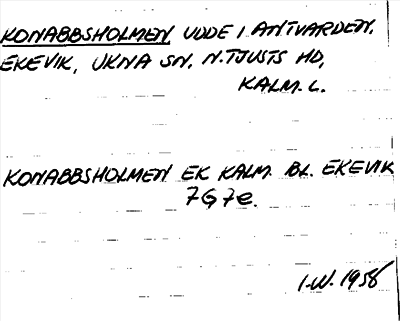 KONABBSHOLMEN UDDE I ANTVARDEN,
EKEVIK, UKNA SN, N. TJUSTS HD,
KALM. L.
KONABBSHOLMEN EK KALM. BL. EKEVIK
7G7e.
I.W. 1958